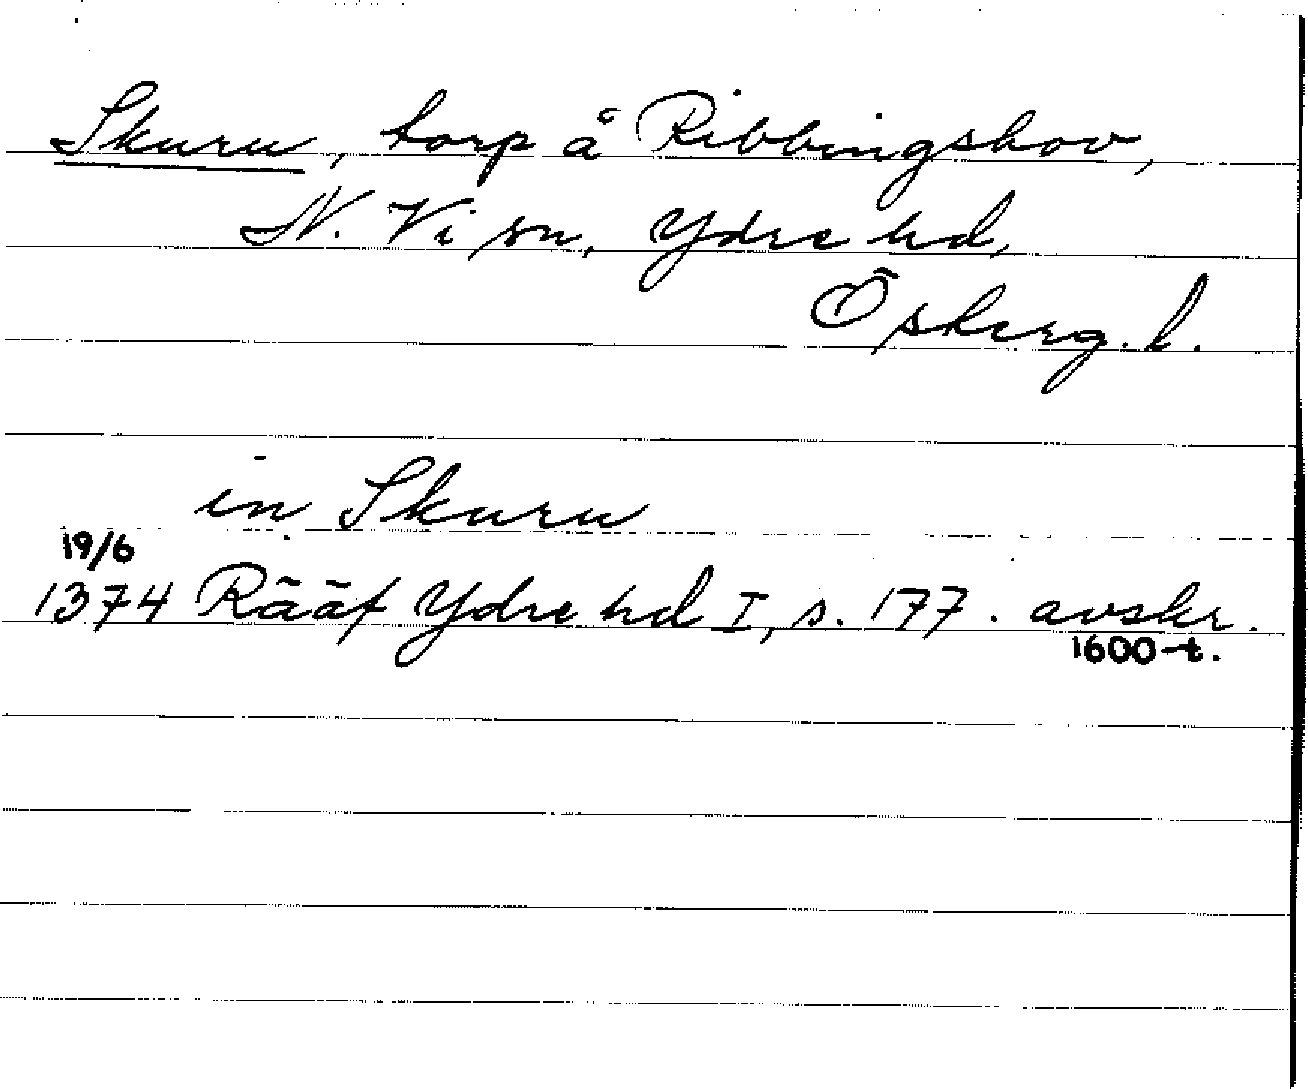 Skuru, torp å Ribbingshov,
N. Vi sn, Ydre hd,
Österg. l.
in Skuru
19/6
1374 Rääf Ydre hd I, s. 177. avskr.
1600-t.